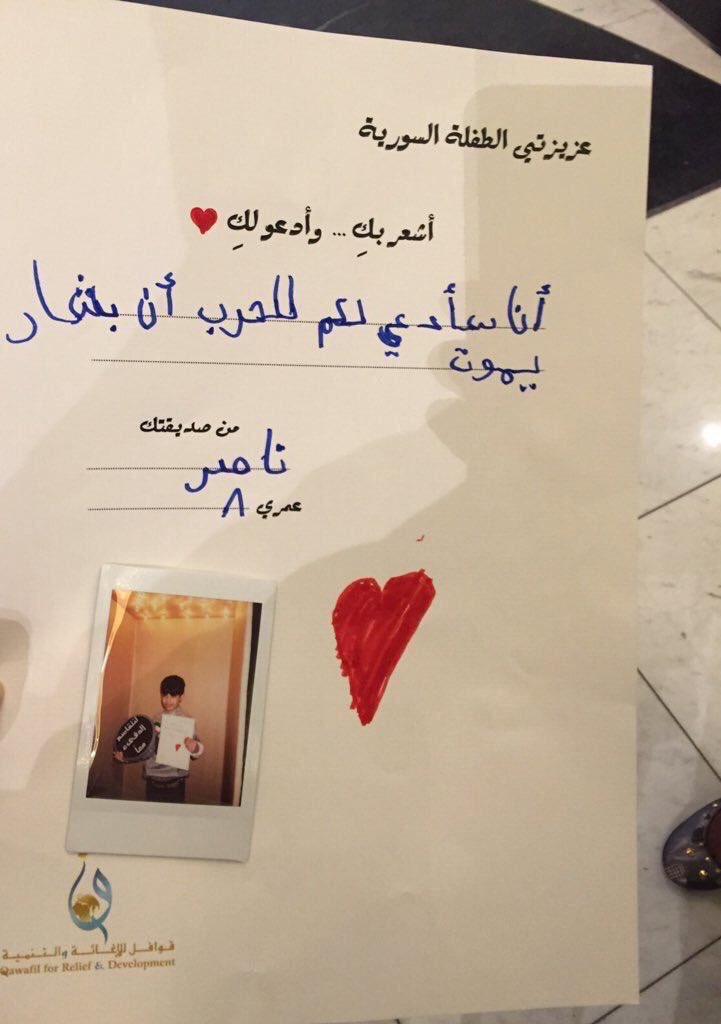 عزيزتي الطفلة السورية
أشعر بكِ... وأدعو لكِ
أنا سأدعي لكم للحرب أن بشار
يموت
من صديقتك
ناصر
عمري ٨
لنتقاسم
الدفىء
معاً
قوافل للإغاثة والتنمية
Qawafil for Relief & Development